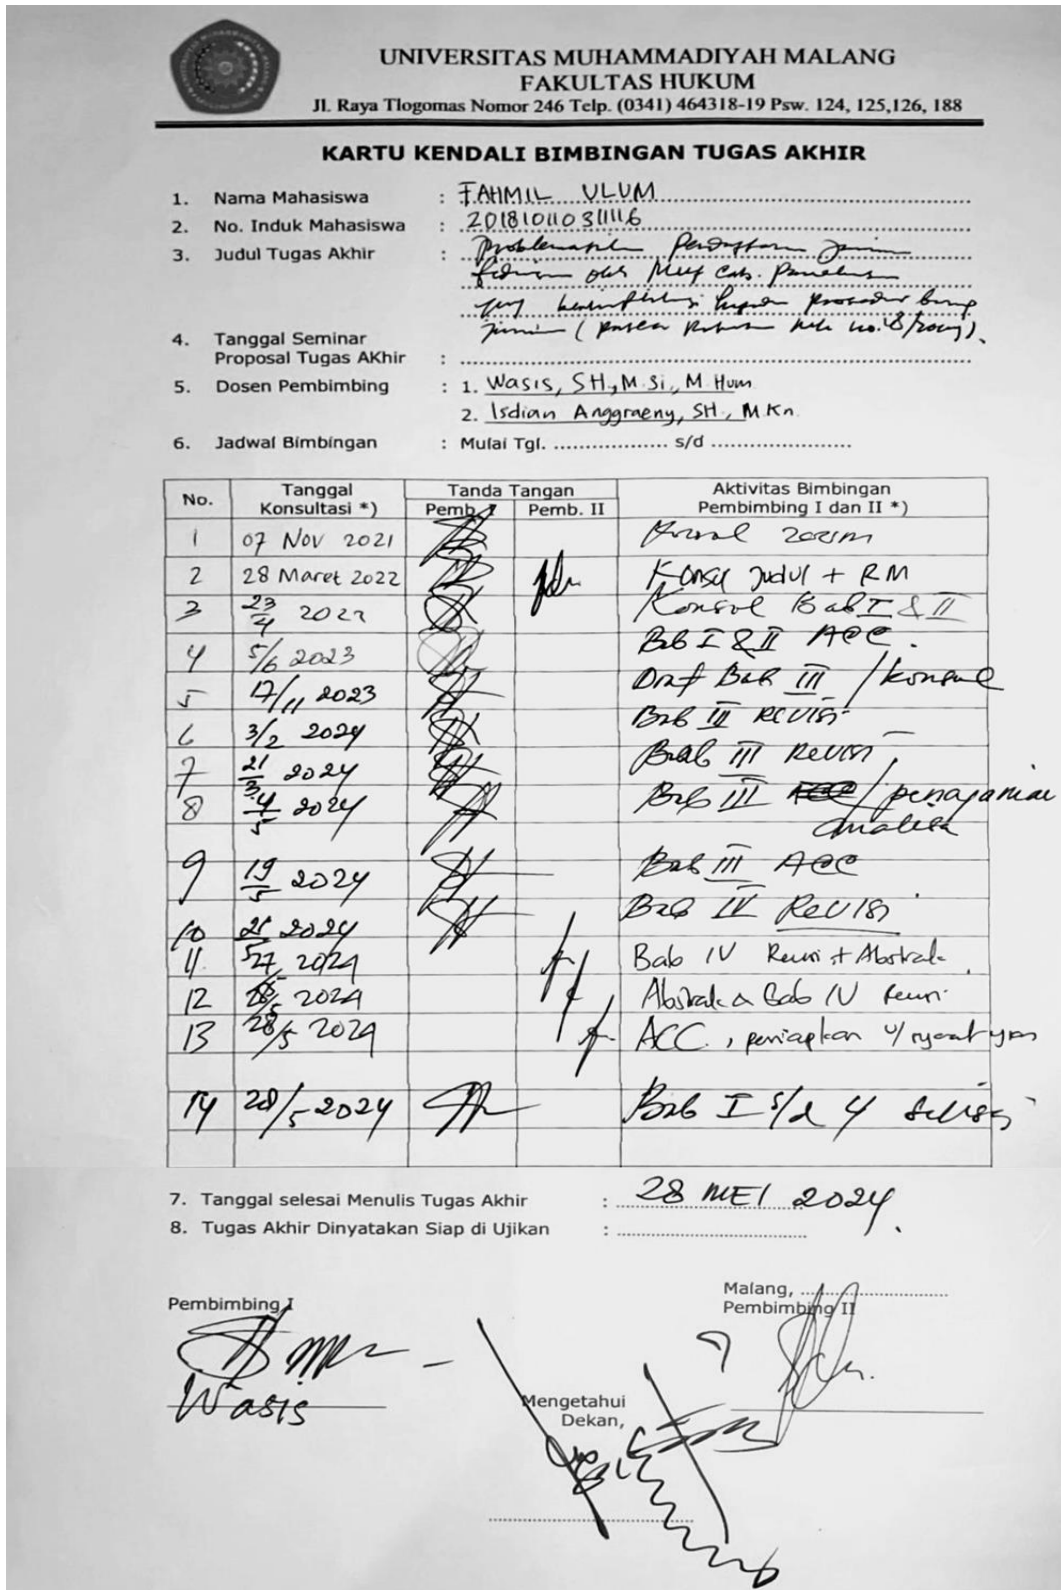 UNIVERSITAS MUHAMMADIYAH MALANG
FAKULTAS HUKUM
Jl. Raya Tlogomas Nomor 246 Telp. (0341) 464318-19 Psw. 124, 125,126, 188
KARTU KENDALI BIMBINGAN TUGAS AKHIR
1. Nama Mahasiswa : FAHMIL ULUM
2. No. Induk Mahasiswa : 201810110311116
3. Judul Tugas Akhir : Problematik Pendaftaran Jaminan
fidusia oleh Cab.
yang kepada prosedur
4. Tanggal Seminar
Proposal Tugas AKhir :
5. Dosen Pembimbing : 1. Wasis, SH., M.Si., M.Hum
2. Isdian Anggraeny, SH., M.Kn.
6. Jadwal Bimbingan : Mulai Tgl. .................. s/d .....................
No. Tanggal Konsultasi *) Tanda Tangan Aktivitas Bimbingan
Pemb. I Pemb. II Pembimbing I dan II *)
1 07 Nov 2021
2 28 Maret 2022 Konsul Judul + RM
3 23/4 2022 Konsul Bab I & II
4 5/6 2023 Bab I & II ACC.
5 17/11 2023 Draf Bab III / konsul
6 3/2 2024 Bab III Revisi
7 21/3 2024 Bab III Revisi
8 4/5 2024 Bab III ACC / penajaman
analisa
9 19/5 2024 Bab III ACC
10 25/5 2024 Bab IV Revisi
11. 27/5 2024 Bab IV Revisi + Abstrak
12 28/5 2024 Abstrak & Bab IV Revisi
13 28/5 2024 ACC, persiapkan u/
14 28/5 2024 Bab I s/d 4 selesai
7. Tanggal selesai Menulis Tugas Akhir : 28 MEI 2024.
8. Tugas Akhir Dinyatakan Siap di Ujikan :
Malang,
Pembimbing I Pembimbing II
Wasis
Mengetahui
Dekan,